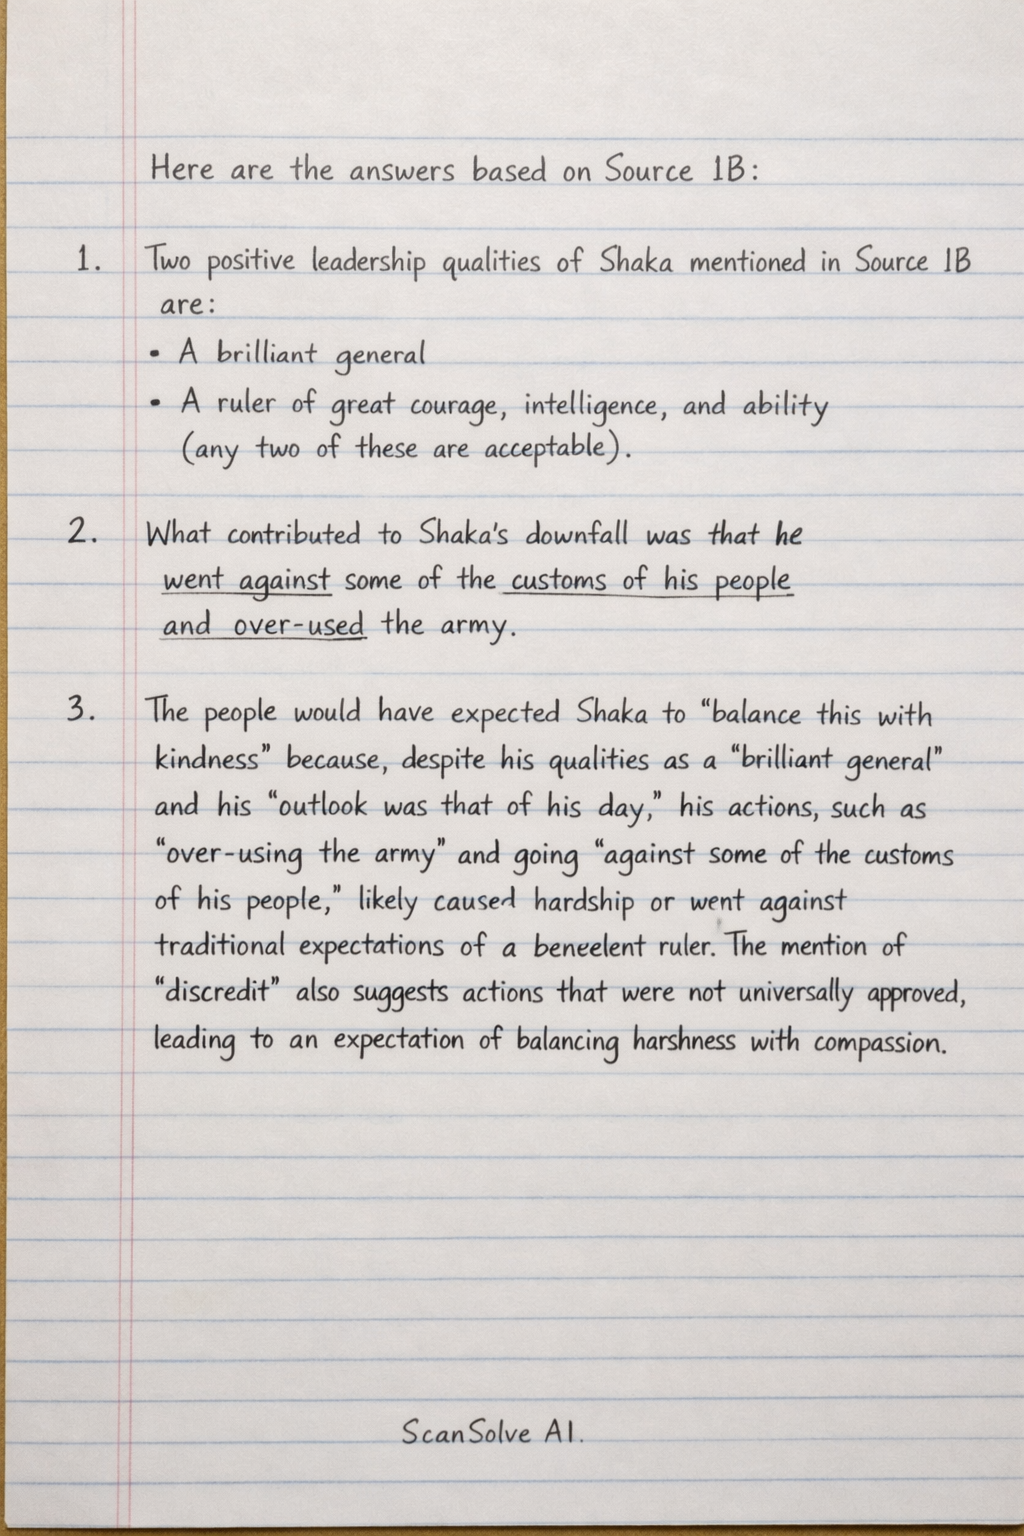 Here are the answers based on Source 1B:
1. Two positive leadership qualities of Shaka mentioned in Source 1B
are:
• A brilliant general
• A ruler of great courage, intelligence, and ability
(any two of these are acceptable).
2. What contributed to Shaka's downfall was that he
went against some of the customs of his people
and over-used the army.
3. The people would have expected Shaka to "balance this with
kindness" because, despite his qualities as a "brilliant general"
and his "outlook was that of his day," his actions, such as
"over-using the army" and going "against some of the customs
of his people," likely caused hardship or went against
traditional expectations of a beneelent ruler. The mention of
"discredit" also suggests actions that were not universally approved,
leading to an expectation of balancing harshness with compassion.
ScanSolve AI.